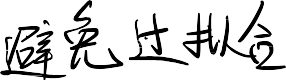 避免过拟合